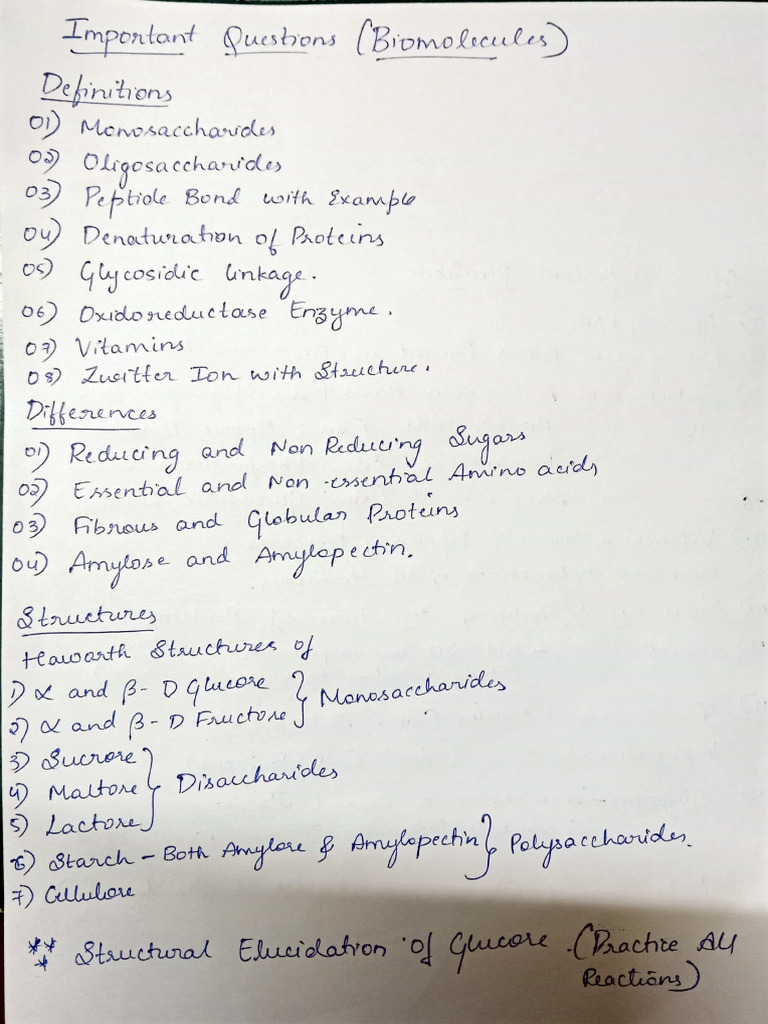 Important Questions (Biomolecules)
Definitions
01) Monosaccharides
02) Oligosaccharides
03) Peptide Bond with Example
04) Denaturation of Proteins
05) Glycosidic linkage.
06) Oxidoreductase Enzyme.
07) Vitamins
08) Zwitter Ion with Structure.
Differences
01) Reducing and Non Reducing Sugars
02) Essential and Non-essential Amino acids
03) Fibrous and Globular Proteins
04) Amylose and Amylopectin.
Structures
Hawarth Structures of
1) α and β- D Glucose } Monosaccharides
2) α and β- D Fructose
3) Sucrose
4) Maltose } Disaccharides
5) Lactose
6) Starch - Both Amylose & Amylopectin } Polysaccharides.
7) Cellulose
*** Structural Elucidation of Glucose. (Practice All
Reactions)